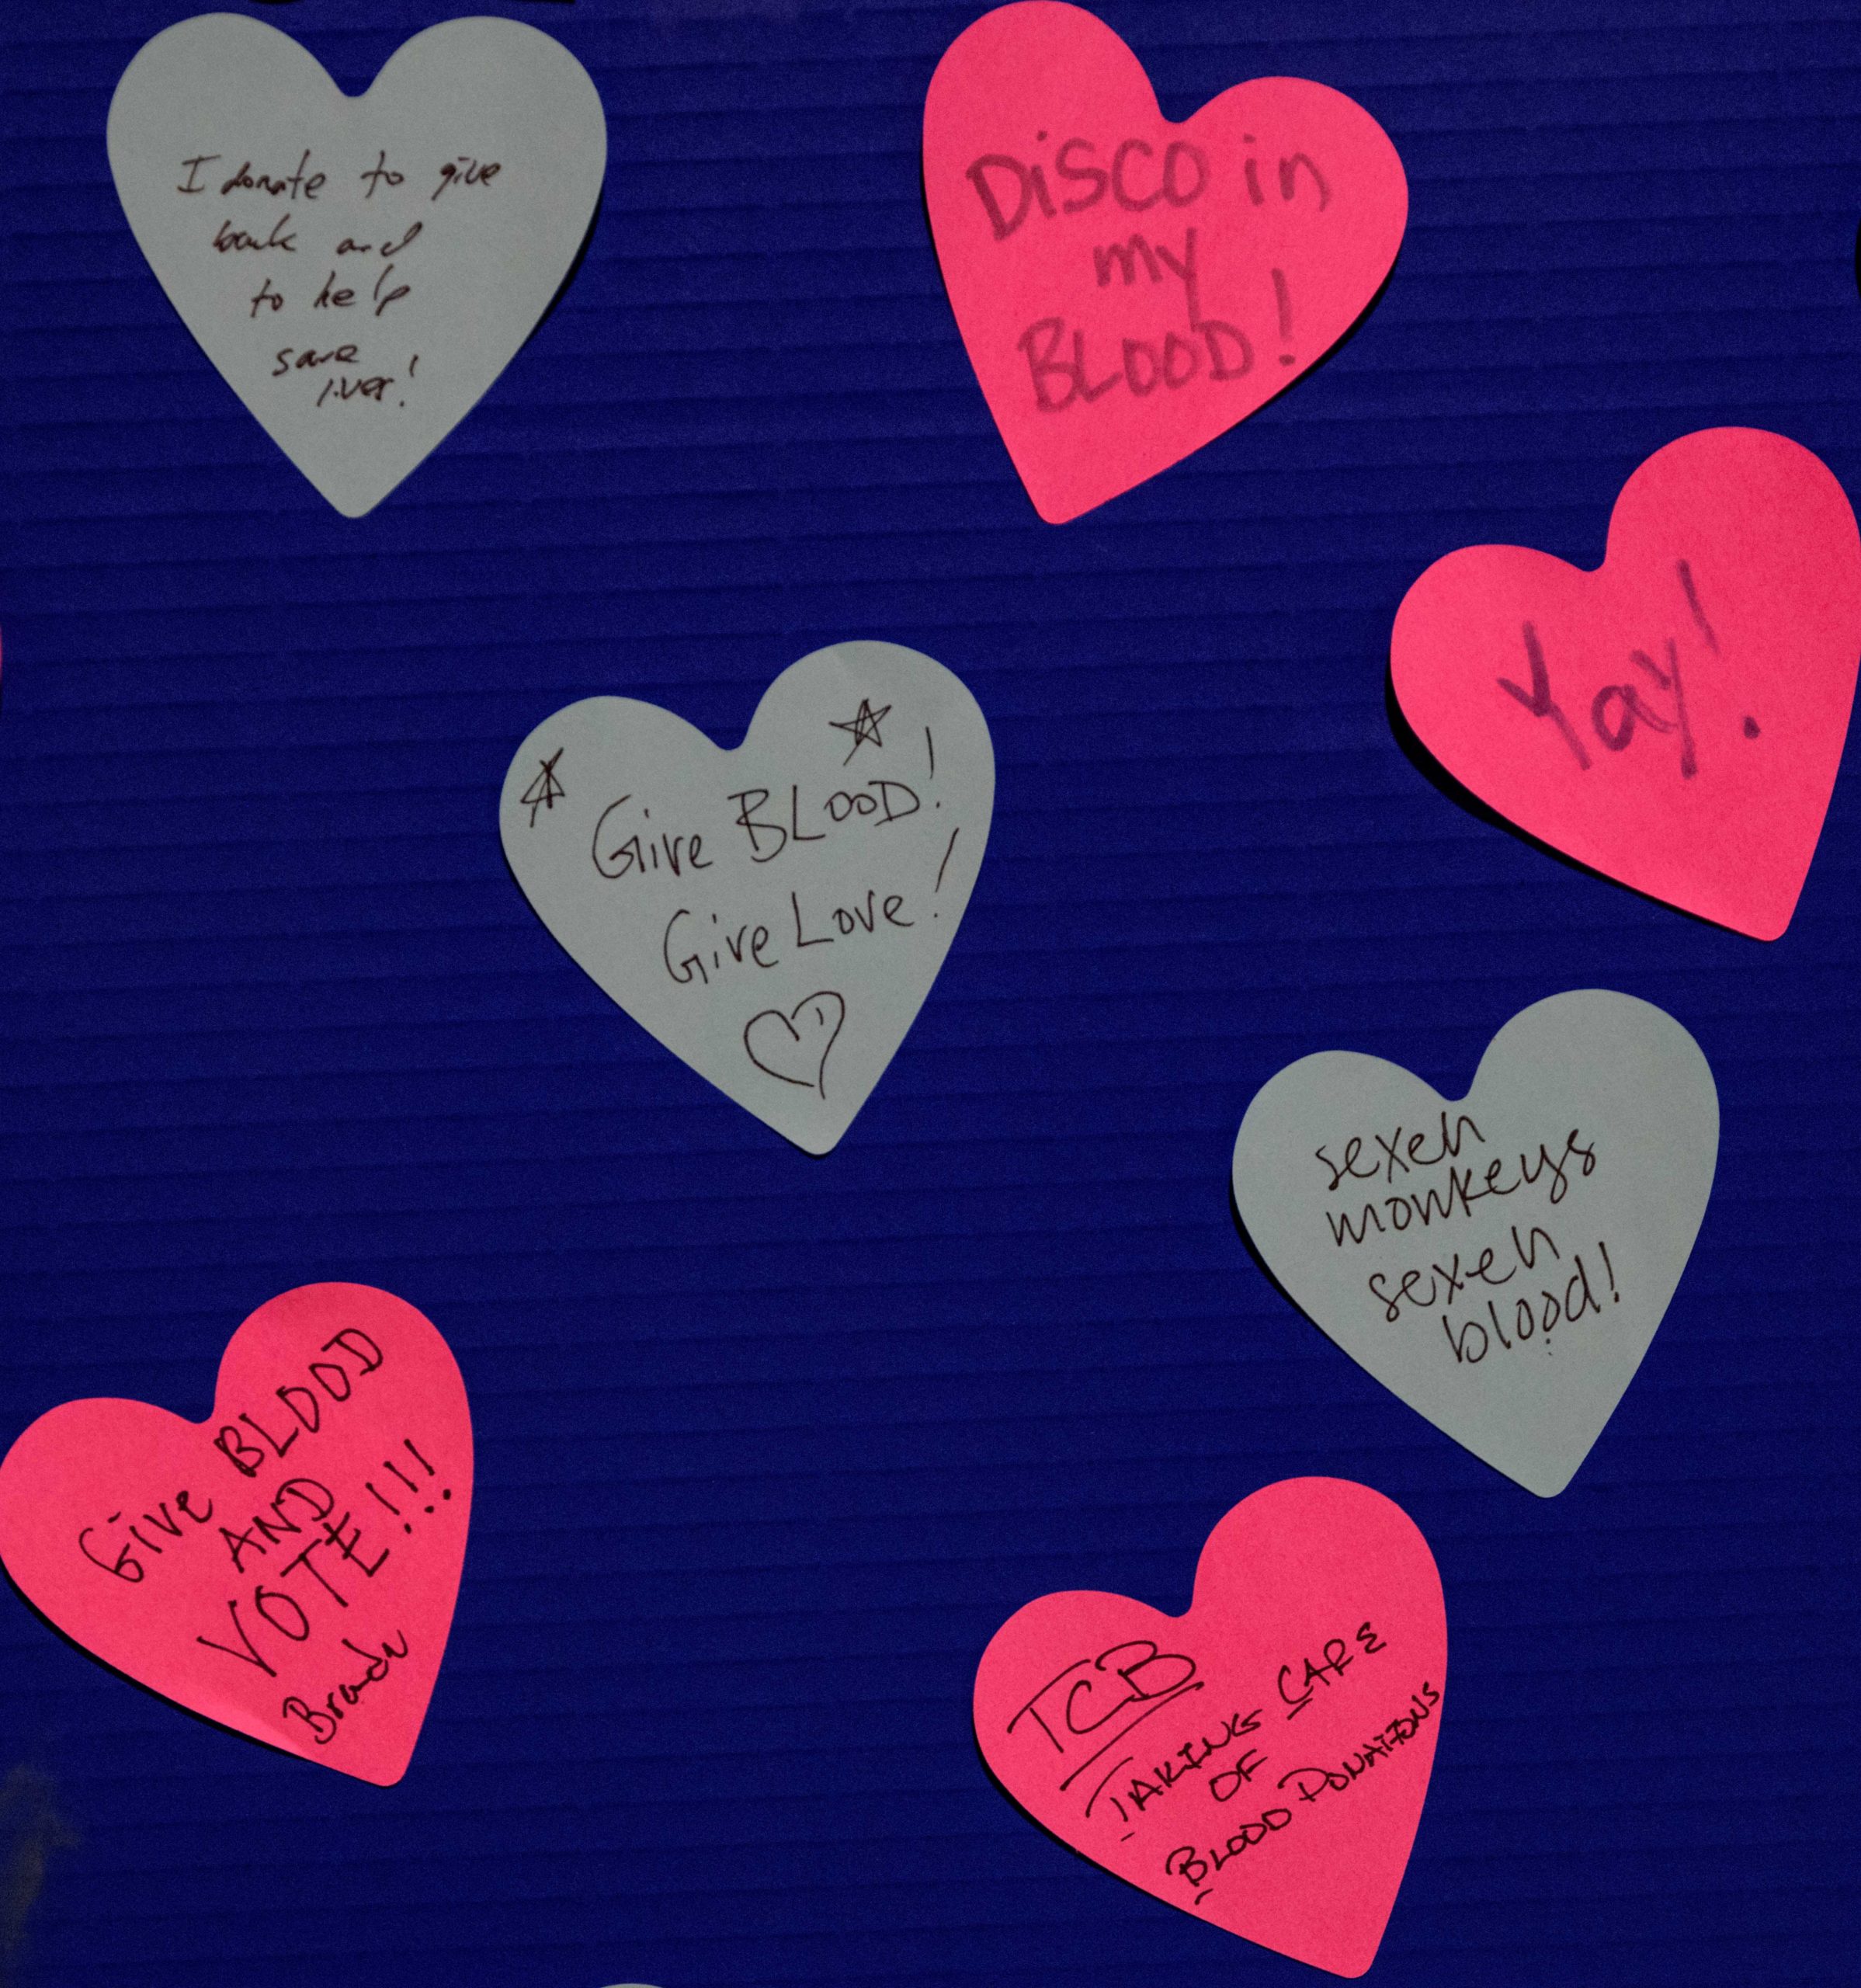 I donate to give
back and
to help
save
lives!
DiSCO in
my
BLOOD!
Yay!
Give BLOOD!
Give Love!
sexeh
monkeys
sexeh
blood!
Give BLOOD
AND
VOTE!!!
TCB
TAKING CARE
OF
BLOOD DONATIONS